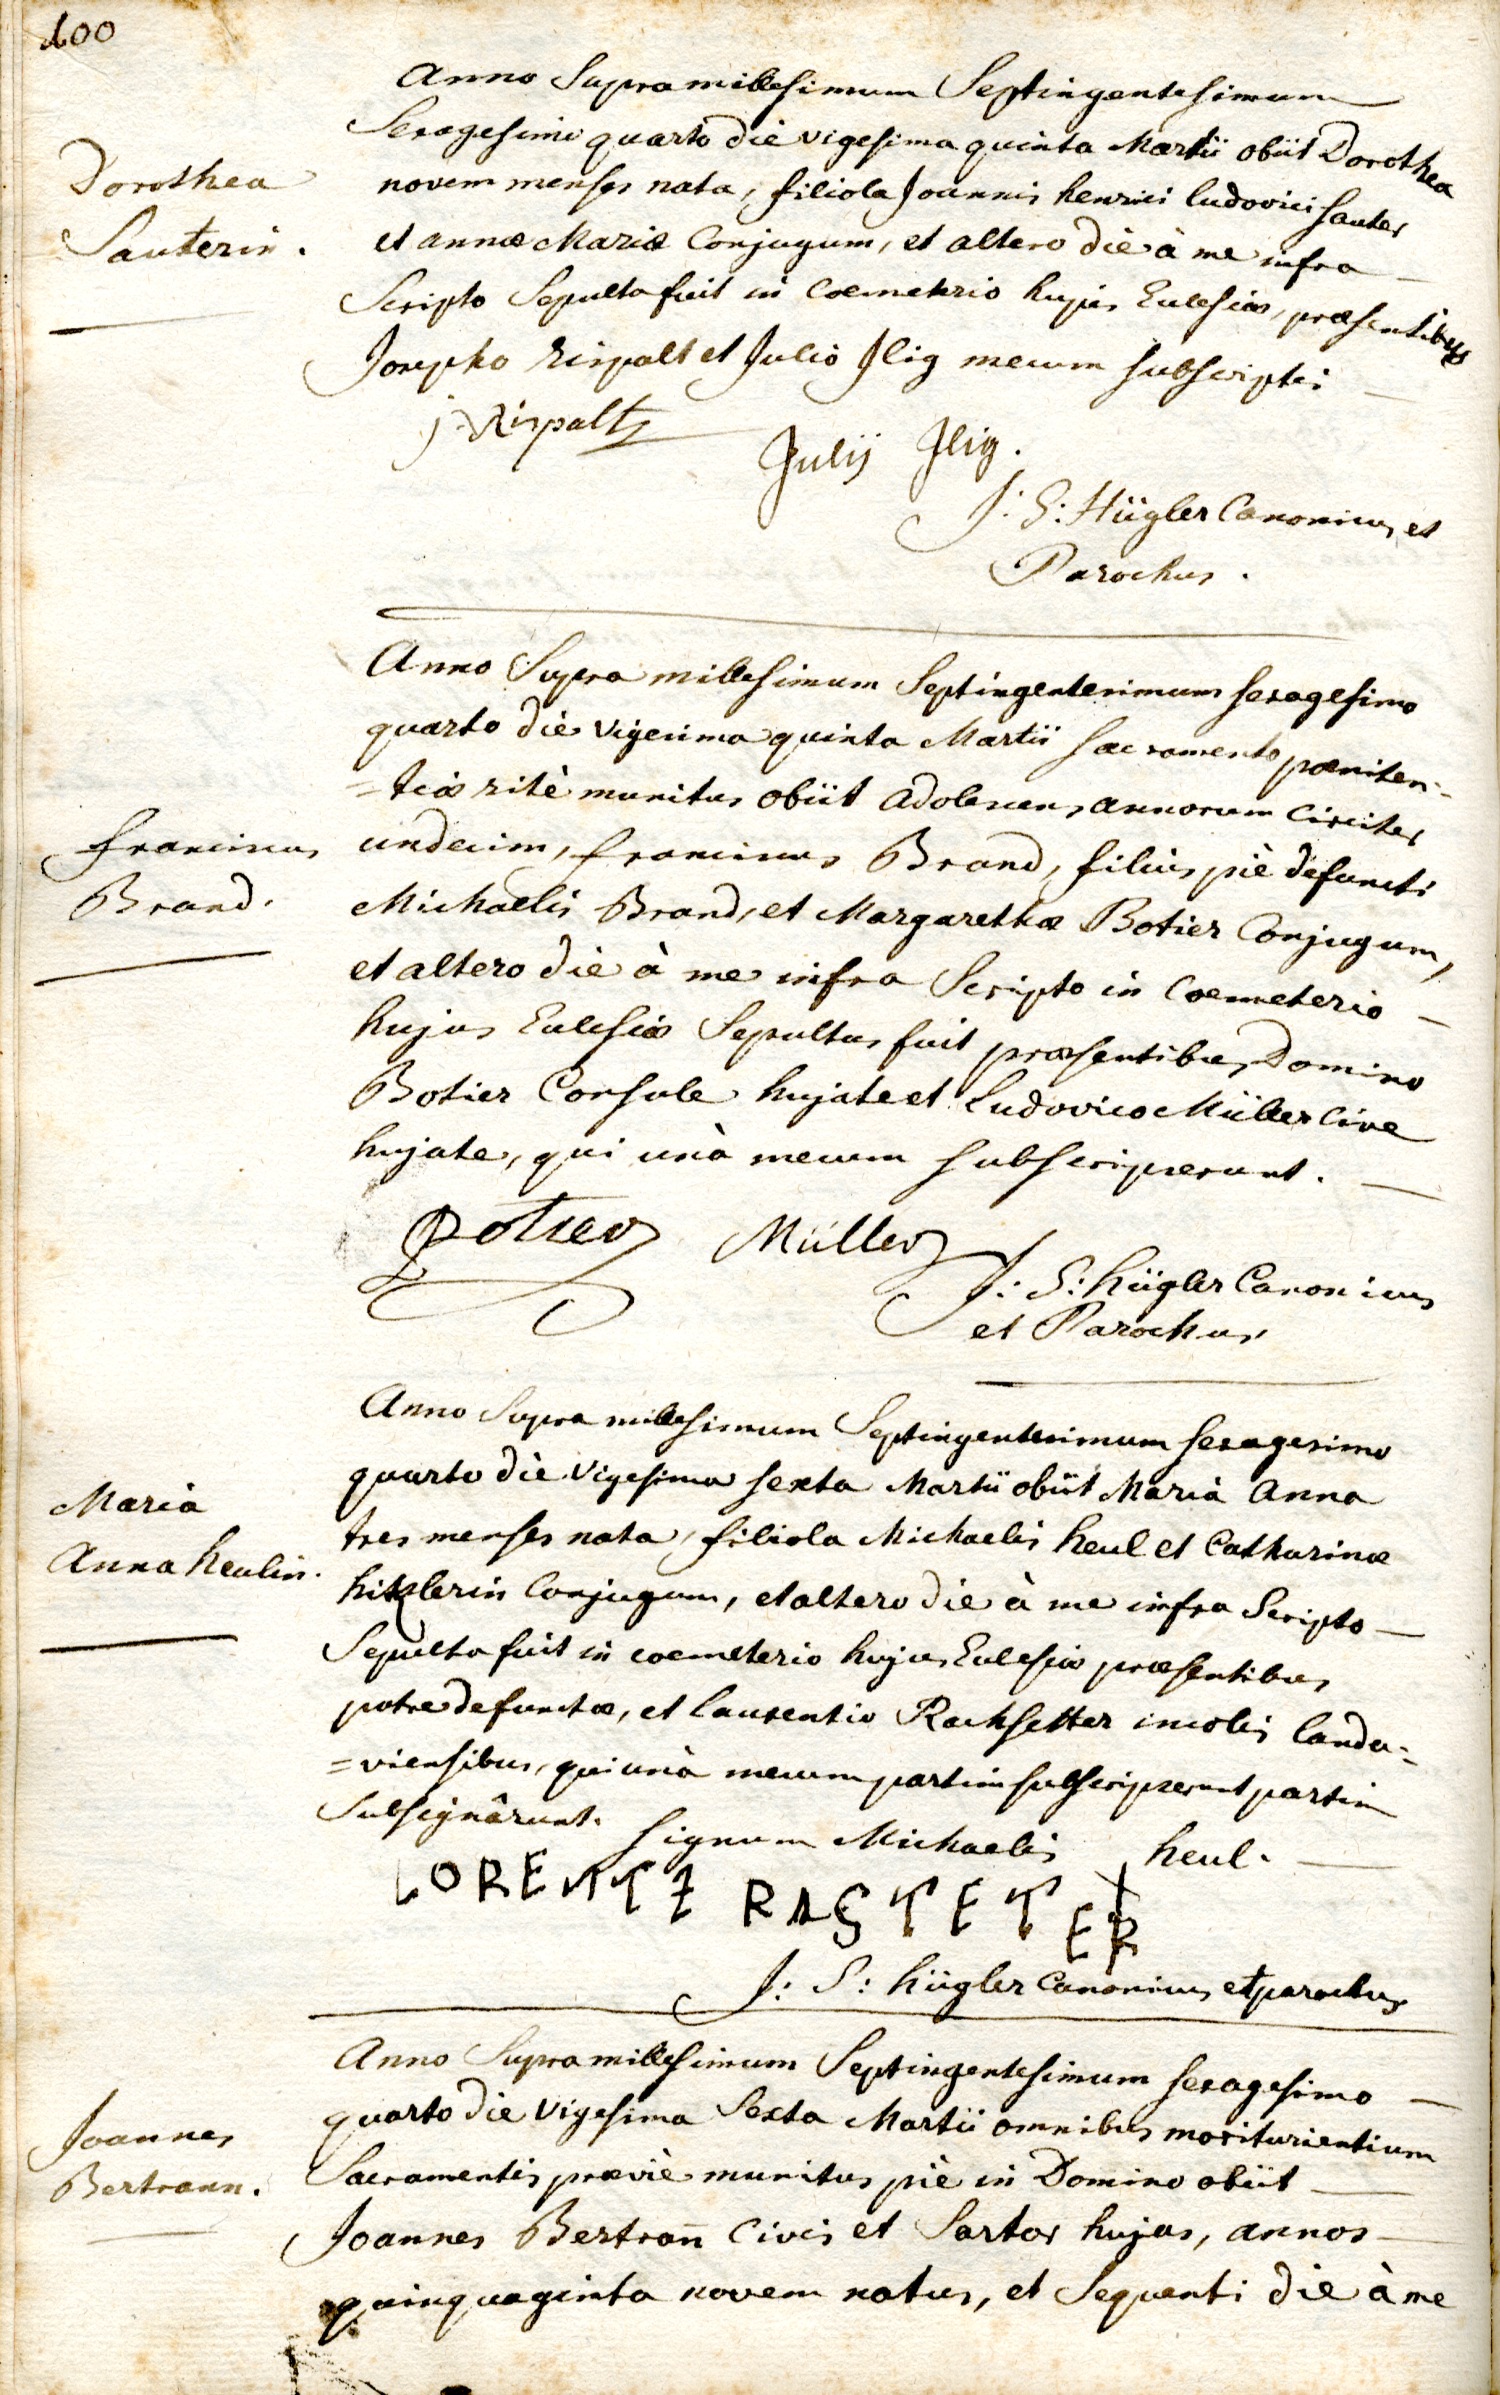 100
Anno Supra millesimum Septingentesimum
Sexagesimo quarto die vigesima quinta Martii obiit Dorothea
novem menses nata, filiola Joannis henrici ludovici sauter
et annæ Mariæ Conjugum, et altero die à me infra
Scripto Sepulta fuit in Coemeterio hujus Ecclesiæ, præsentibus
Josepho Rispalt et Julio Jlig mecum subscriptis
Dorothea
Sauterin.
j Rispalt
Julij Jlig.
J: S: Hügler Canonicus et
Parochus.
Anno Supra millesimum Septingentesimum sexagesimo
quarto die vigesima quinta Martii sacramento pœniten=
=tiæ ritè munitus obiit adolescens annorum circiter
undecim, franciscus Brand, filius piè defuncti
Michaelis Brand, et Margarethæ Botier Conjugum,
et altero die à me infra Scripto in Coemeterio
hujus Ecclesiæ Sepultus fuit præsentibus Domino
Botier Consule hujate et Ludovico Müller Cive
hujate, qui unà mecum subscripserunt.
franciscus
Brand.
Potier Müller
J: S: hügler Canonicus
et Parochus
Anno Supra millesimum Septingentesimum sexagesimo
quarto die Vigesima sexta Martii obiit Maria Anna
tres menses nata, filiola Michaelis heul et Catharinæ
hitzlerin Conjugum, et altero die à me infra Scripto
Sepulta fuit in coemeterio hujus Ecclesiæ præsentibus
patre defunctæ, et laurentio Rachstetter incolis landa=
=viensibus, qui unà mecum partim subscripserunt partim
Subsignârunt.
Maria
Anna heulin.
signum Michaelis X heul.
LORENTZ RASTETER
J: S: hügler Canonicus et parochus
Anno Supra millesimum Septingentesimum sexagesimo
quarto die Vigesima Sexta Martii omnibus moriturientium
Sacramentis præviè munitus piè in Domino obiit
Joannes Bertran̄ Civis et Sartor hujas, annos
quinquaginta novem natus, et Sequenti die à me
Joannes
Bertrann.